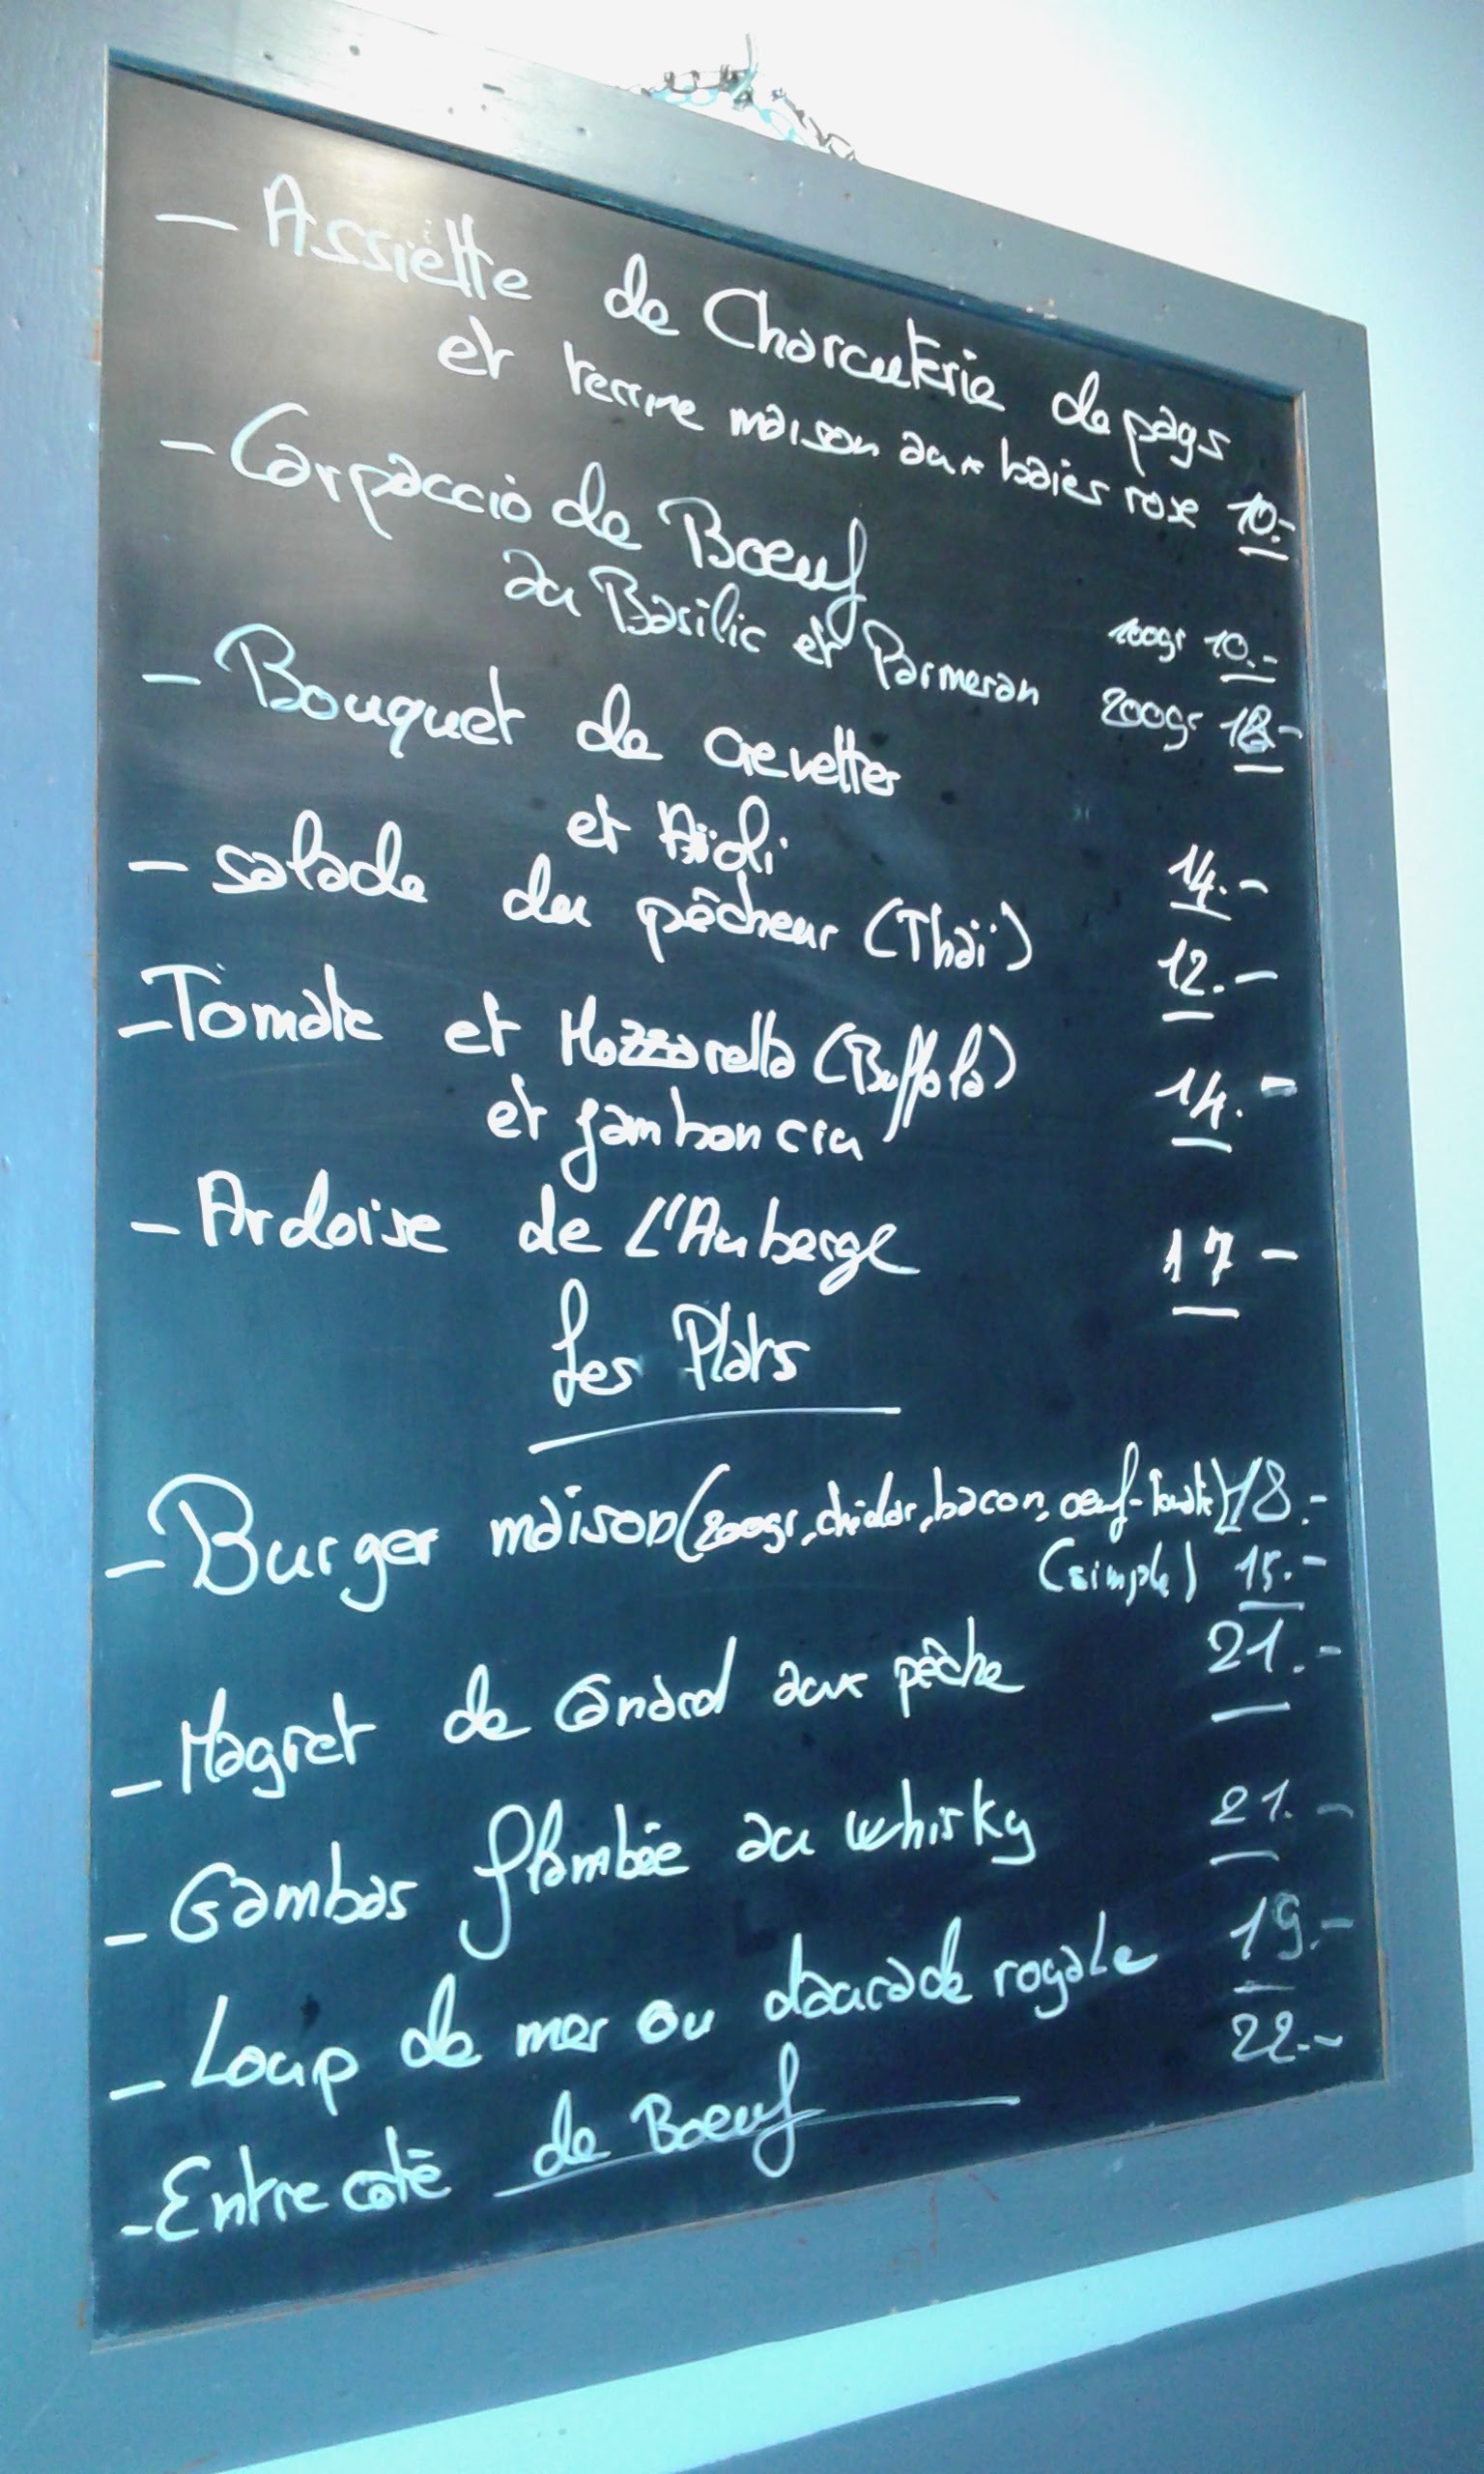 - Assiette de Charcuterie de pays
et terrine maison aux baies rose 10.-
- Carpaccio de Bœuf
au Basilic et Parmesan 100gr 10.-
200gr 18.-
- Bouquet de crevettes
et Aïoli 14.-
- salade du pêcheur (Thaï) 12.-
- Tomate et Mozzarella (Buffala)
et jambon cru 14.-
- Ardoise de L'Auberge 17-
Les Plats
- Burger maison (200gr, chédar, bacon, œuf-Tomate) 18.-
(simple) 15.-
- Magret de Canard aux pêche 21.-
- Gambas flambée au whisky 21.-
- Loup de mer ou daurade royale 19.-
- Entrecotê de Bœuf 22.-